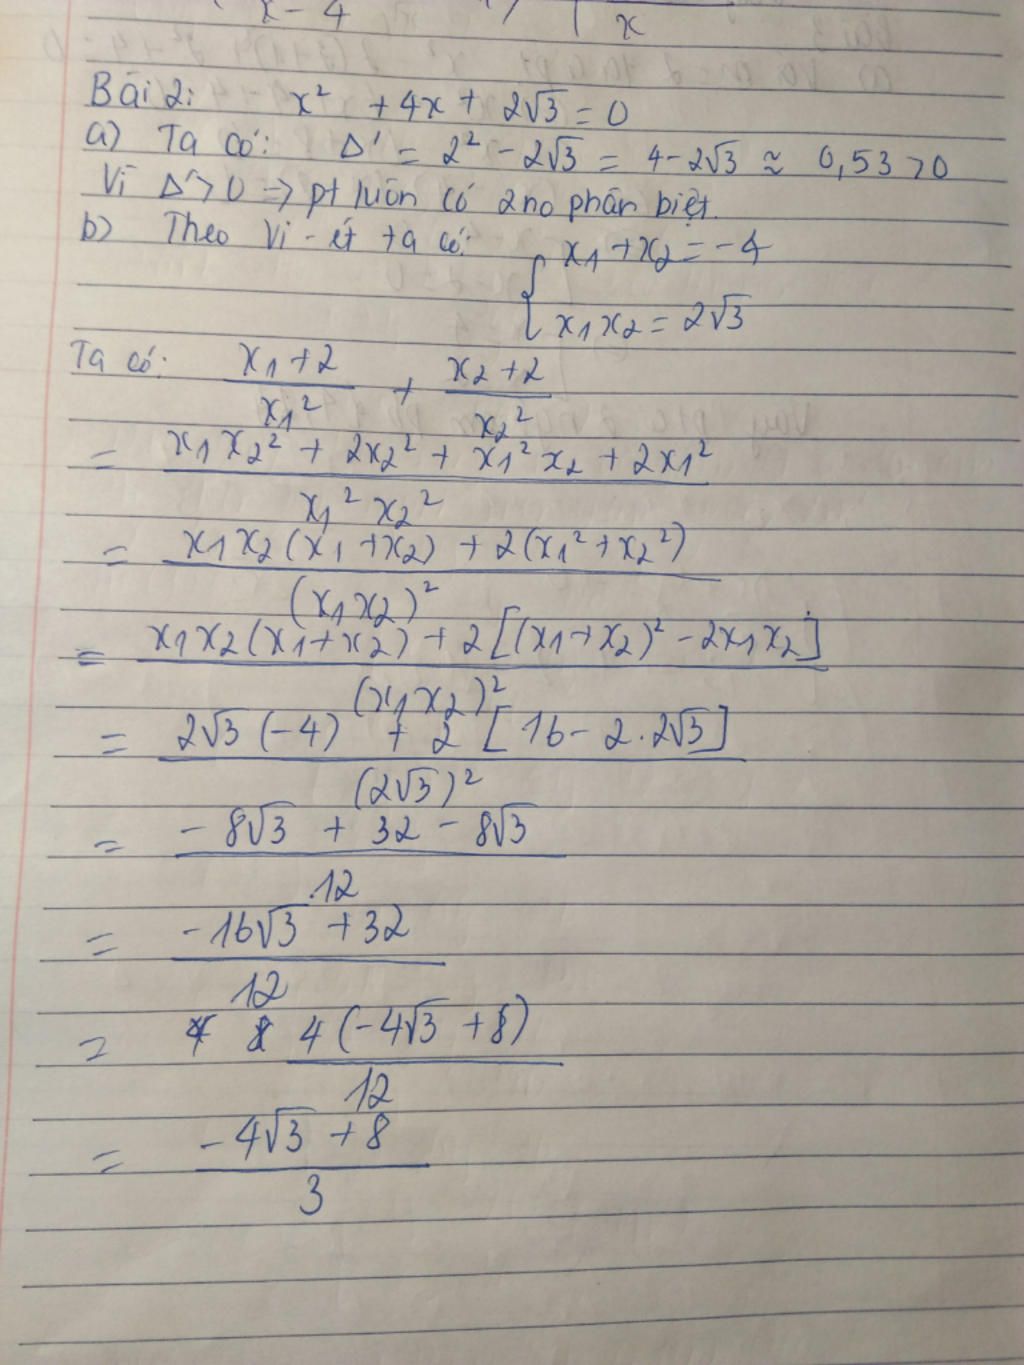 x - 4
x
Bài 2: x² + 4x + 2√3 = 0
a) Ta có: Δ' = 2² - 2√3 = 4 - 2√3 ≈ 0,53 > 0
Vì Δ' > 0 => pt luôn có 2 no phân biệt.
b) Theo Vi-ét ta có: { x₁ + x₂ = -4
x₁x₂ = 2√3
Ta có: (x₁ + 2)/x₁² + (x₂ + 2)/x₂²
= (x₁x₂² + 2x₂² + x₁²x₂ + 2x₁²)/(x₁²x₂²)
= (x₁x₂(x₁ + x₂) + 2(x₁² + x₂²))/(x₁x₂)²
= (x₁x₂(x₁ + x₂) + 2[(x₁ + x₂)² - 2x₁x₂])/(x₁x₂)²
= (2√3(-4) + 2[16 - 2.2√3])/(2√3)²
= (-8√3 + 32 - 8√3)/12
= (-16√3 + 32)/12
= 4(-4√3 + 8)/12
= (-4√3 + 8)/3